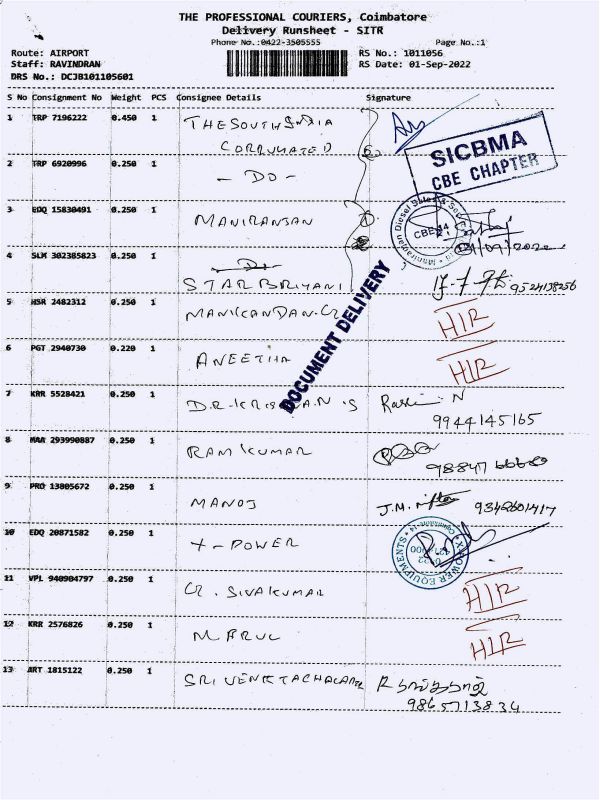 THE PROFESSIONAL COURIERS, Coimbatore
Delivery Runsheet - SITR
Phone No.:0422-3505555 Page No.:1
Route: AIRPORT RS No.: 1011056
Staff: RAVINDRAN RS Date: 01-Sep-2022
DRS No.: DCJB101105601
S No Consignment No Weight PCS Consignee Details Signature
1 TRP 7196222 0.450 1 THE SOUTH INDIA
CORRUGATED
SICBMA
CBE CHAPTER
2 TRP 6920996 0.250 1 - DO -
3 EDQ 15830491 0.250 1 MANIRANJAN
CBE-14
01/09/2022
4 SLM 302385823 0.250 1
STAR BRIYANI 9524138256
5 HSR 2482312 0.250 1 MANIKANDAN.G HIR
DOCUMENT DELIVERY
6 PGT 2940730 0.220 1 ANEETHA HIR
7 KRR 5528421 0.250 1 D.R.KRISHNAN 'S N
9944145165
8 MAA 293990887 0.250 1 RAMKUMAR
9 PRO 13805672 0.250 1 MANOJ J.M. 9342601417
10 EDQ 20871582 0.250 1 X-POWER
X-POWER EQUIPMENTS
11 VPL 940904797 0.250 1 G. SIVAKUMAR HIR
12 KRR 2576826 0.250 1 HIR
13 ART 1815122 0.250 1 SRI VENKTACHALAPA R
9865713834